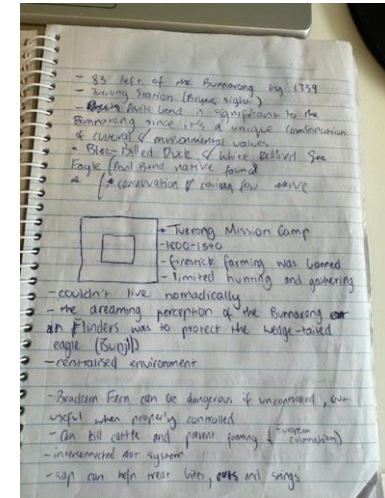 - 83 left of the Bunnarong by 1839
- Tuerong Station (Buyers sight)
- Devils bend is significant to the
Bunnarong since it's a unique combination
of cultural & environmental values
- Blue Billed Duck & White Bellied Sea
Eagle native
conservation of native
- Tuerong Mission Camp
- 1800-1840
- firestick farming was banned
- limited hunting and gathering
- couldn't live nomadically
- the dreaming perception of the Bunnarong
in Flinders was to protect the wedge-tailed
eagle (Bunjil)
- centralised environment
- Bracken Fern can be dangerous if uncontrolled, but
useful when properly controlled
- can kill cattle and prevent farming
- interconnected root system
- sap can help treat bites, cuts and stings